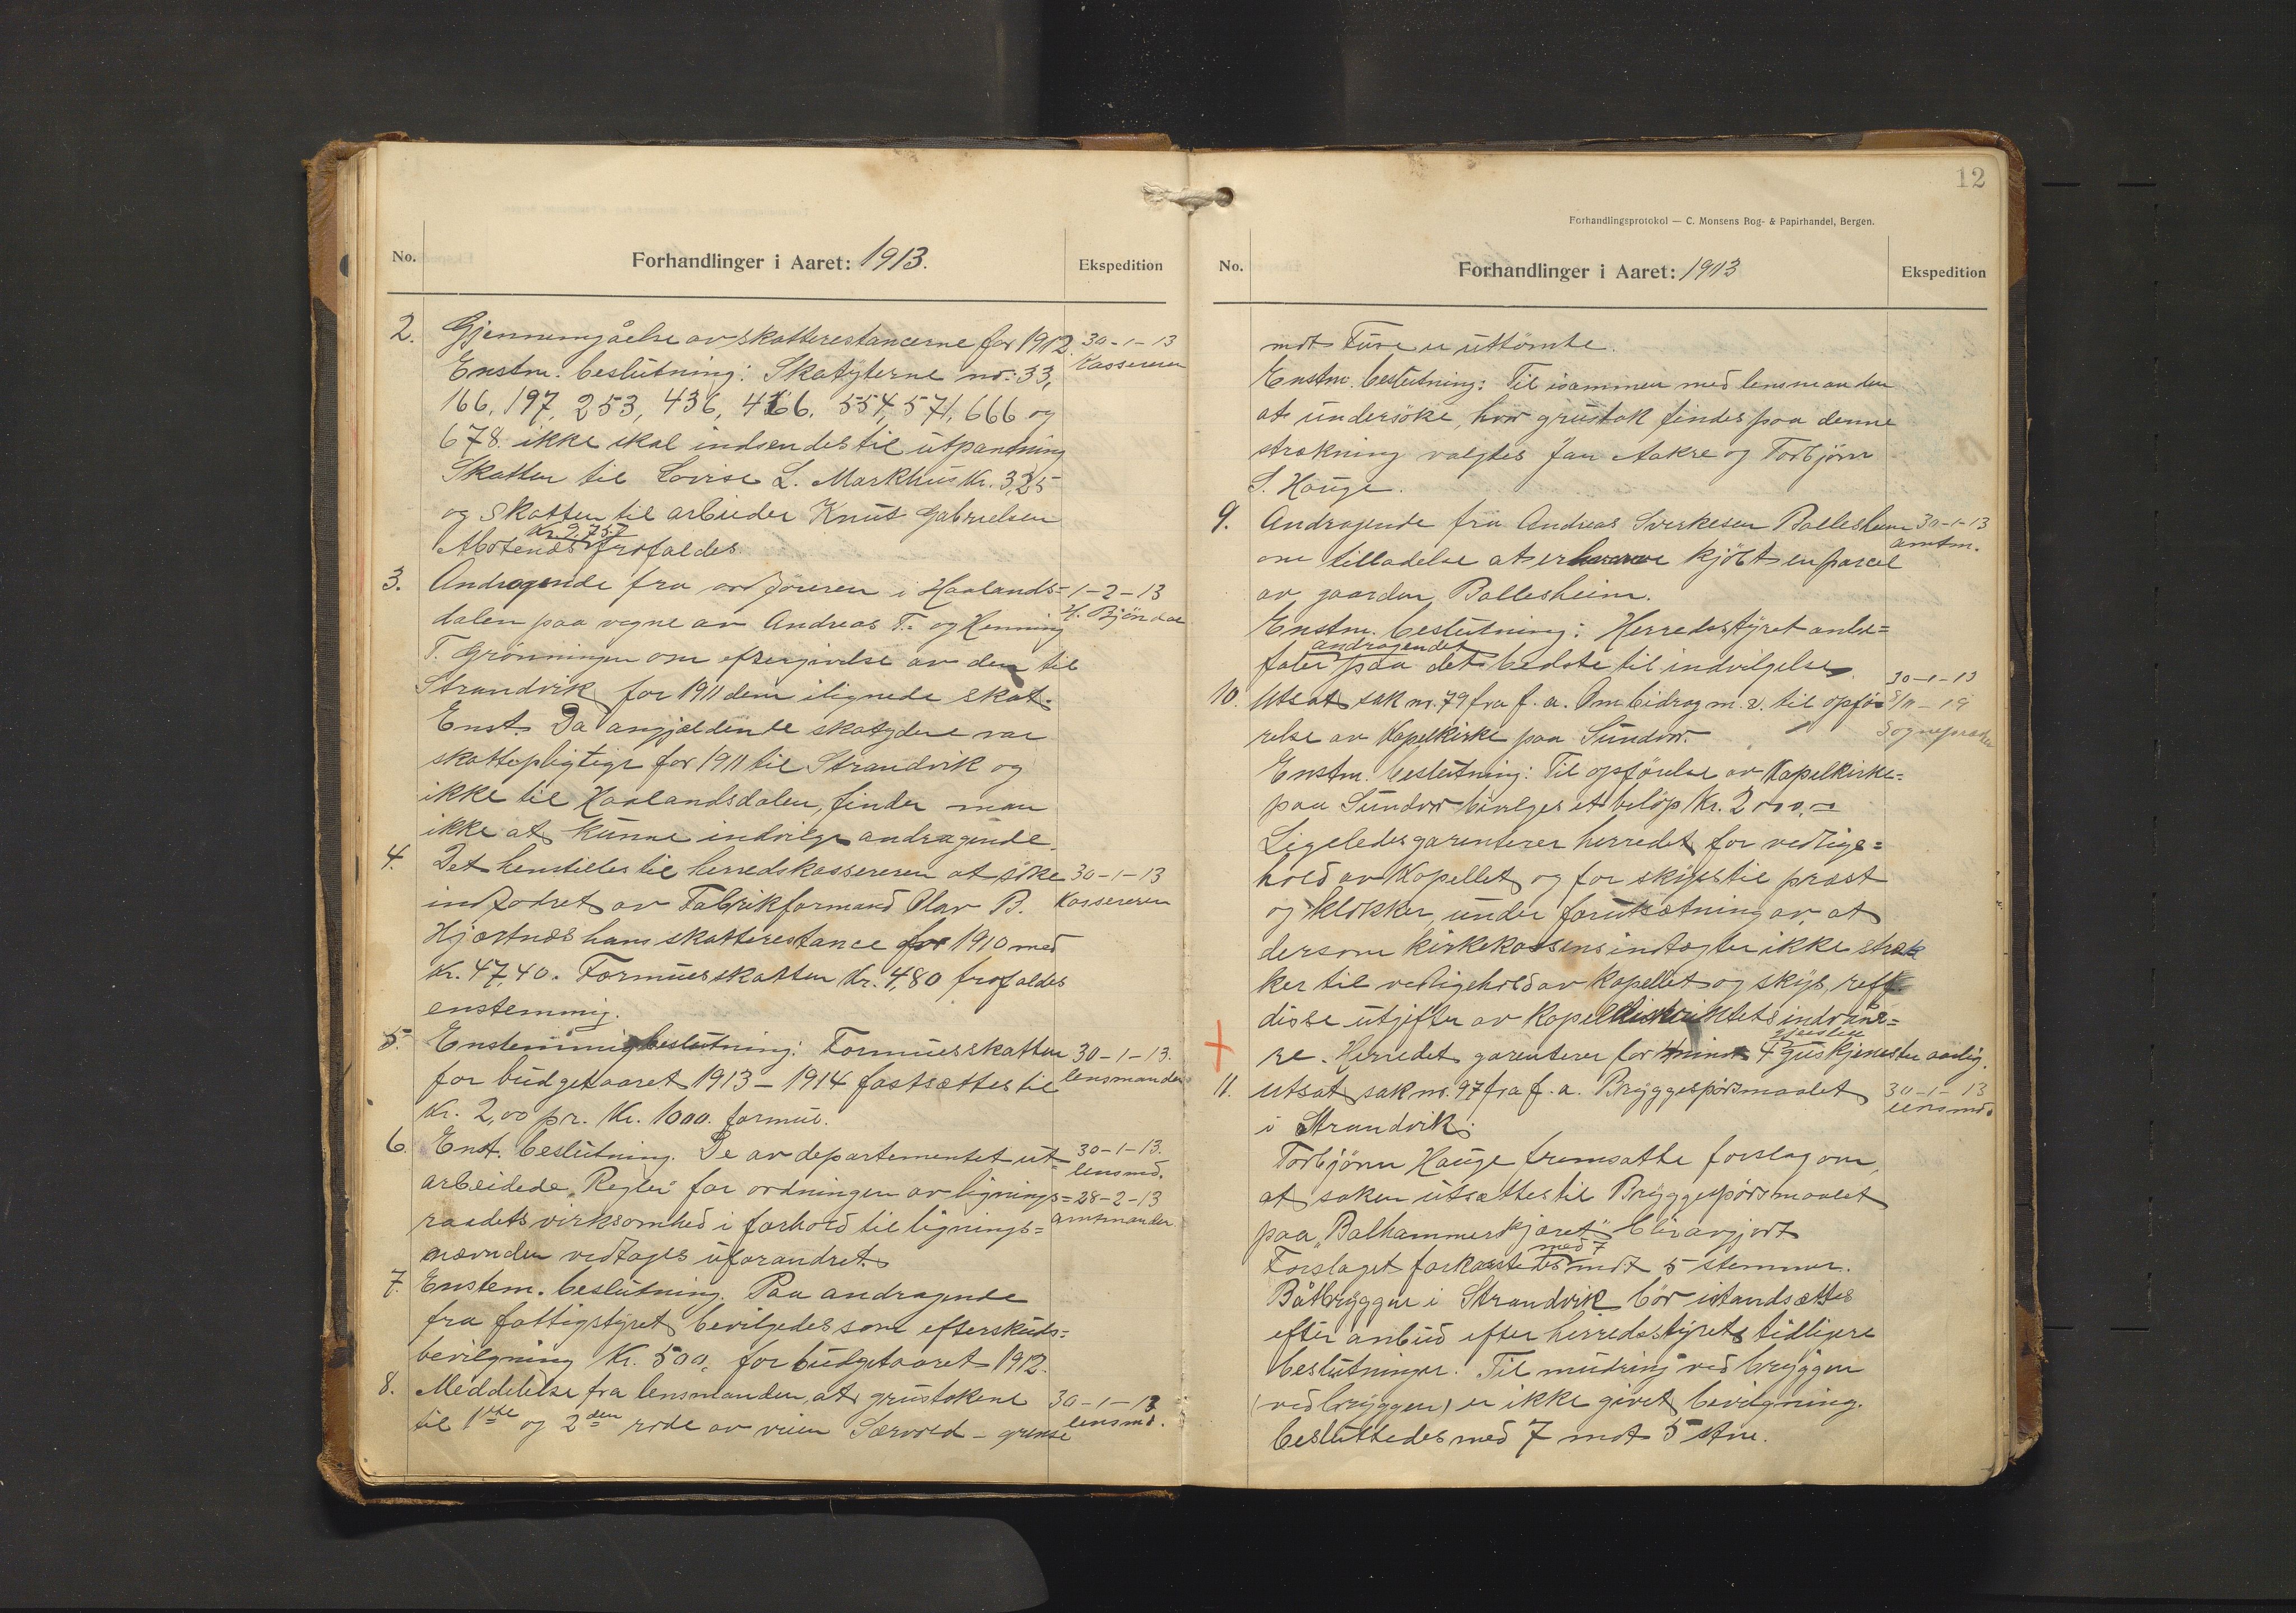 No.
Forhandlinger i Aaret: 1913.
Ekspedition
2. Gjennemgåelse av skatterestancerne for 1912. 30-1-13
Enstm. beslutning: Skatyterne nr. 33, Kassereren
166, 197, 253, 436, 466, 554, 571, 666 og
678 ikke skal indsendes til utpantning
Skatten til Lovise L. Markhus Kr. 3,25
og skatten til arbeider Knut Gabrielsen
Kr. 9,757
frafaldes.
3. Andragende fra ordföreren i Haalands= 1-2-13
dalen paa vegne av Andreas T. og Henning H. Bjöndal
T. Grönningen om eftergivelse av den til
Strandvik for 1911 dem ilignede skat.
Enst. Da angjældende skatydere var
skattepligtige for 1911 til Strandvik og
ikke til Haalandsdalen, finder man
ikke at kunne indvilge andragende.
4. Det henstilles til herredskassereren at söke 30-1-13
indfodret av Fabrikformand Olav B. Kassereren
Hjartnæs hans skatterestance for 1910 med
Kr. 47,40. Formuesskatten Kr. 4,80 frafaldes
enstemmig.
5. Enstemmig beslutning: Formuesskatten 30-1-13.
for budgetaaret 1913-1914 fastsættes til lensmanden
Kr. 2,00 pr. Kr. 1000. formue.
6. Enst. beslutning. De av departementet ut= 30-1-13.
lensmd.
arbeidede „Regler" for ordningen av lignings= 28-2-13
raadets virksomhed i forhold til lignings= amtmanden
nævnden vedtages uforandret.
7. Enstem. beslutning. Paa andragende
fra fattigstyret bevilgedes som efterskuds=
bevilgning Kr. 500, for budgetaaret 1912.
8. Meddelelse fra lensmanden, at grustakene 30-1-13
til 1ste og 2den rode av veien Sævold - grænse lensmd.
12
Forhandlingsprotokol — C. Monsens Bog- & Papirhandel, Bergen.
No.
Forhandlinger i Aaret: 1913
Ekspedition
mot Fuse er uttömte.
Enstm. beslutning: Til isammen med lensmanden
at undersöke, hvor grustak findes paa denne
strækning valgtes Jan Aakre og Torbjörn
S. Hauge.
9. Andragende fra Andreas Sverkesen Ballesheim 30-1-13
om tilladelse at erhverve kjöbt en parcel amtm.
av gaarden Ballesheim.
Enstm. beslutning: Herredsstyret anbe=
andragendet
faler paa det bedste til indvilgelse.
30-1-13
10. Utsat sak nr. 79 fra f. a. Om bidrag m. v. til opfö= 5/11-19
relse av Kapelkirke paa Sundvor. Sognepresten
Enstm. beslutning: Til opförelse av Kapelkirke=
paa Sundvor bevilges et belöp Kr. 2000,-
Ligeledes garenterer herredet for vedlige=
hold av Kapellet og for skyss til præst
og klokker, under forutsætning av, at
dersom kirkekassens indtægter ikke stræk
ker til vedligehold av Kapellet og skys, reff.
disse utgifter av Kapeldistriktets indvåne=
gjeslene
re. Herredet garenterer for 4 guskjenester aarlig.
11. Utsat sak nr. 97 fra f. a. Bryggespörsmaalet 30-1-13
i Strandvik. lensmd.
Torbjörn Hauge fremsatte forslag om,
at saken utsættes til Bryggespörsmaalet
paa „Balhammerskjæret" blir avgjort
med 7
Forslaget forkastedes mot 5 stemmer.
Båtbryggen i Strandvik bör istandsættes
efter anbud efter herredsstyrets tidligere
beslutninger. Til mudring ved bryggen
(ved bryggen) er ikke givet bevilgning.
besluttedes med 7 mot 5 stm.